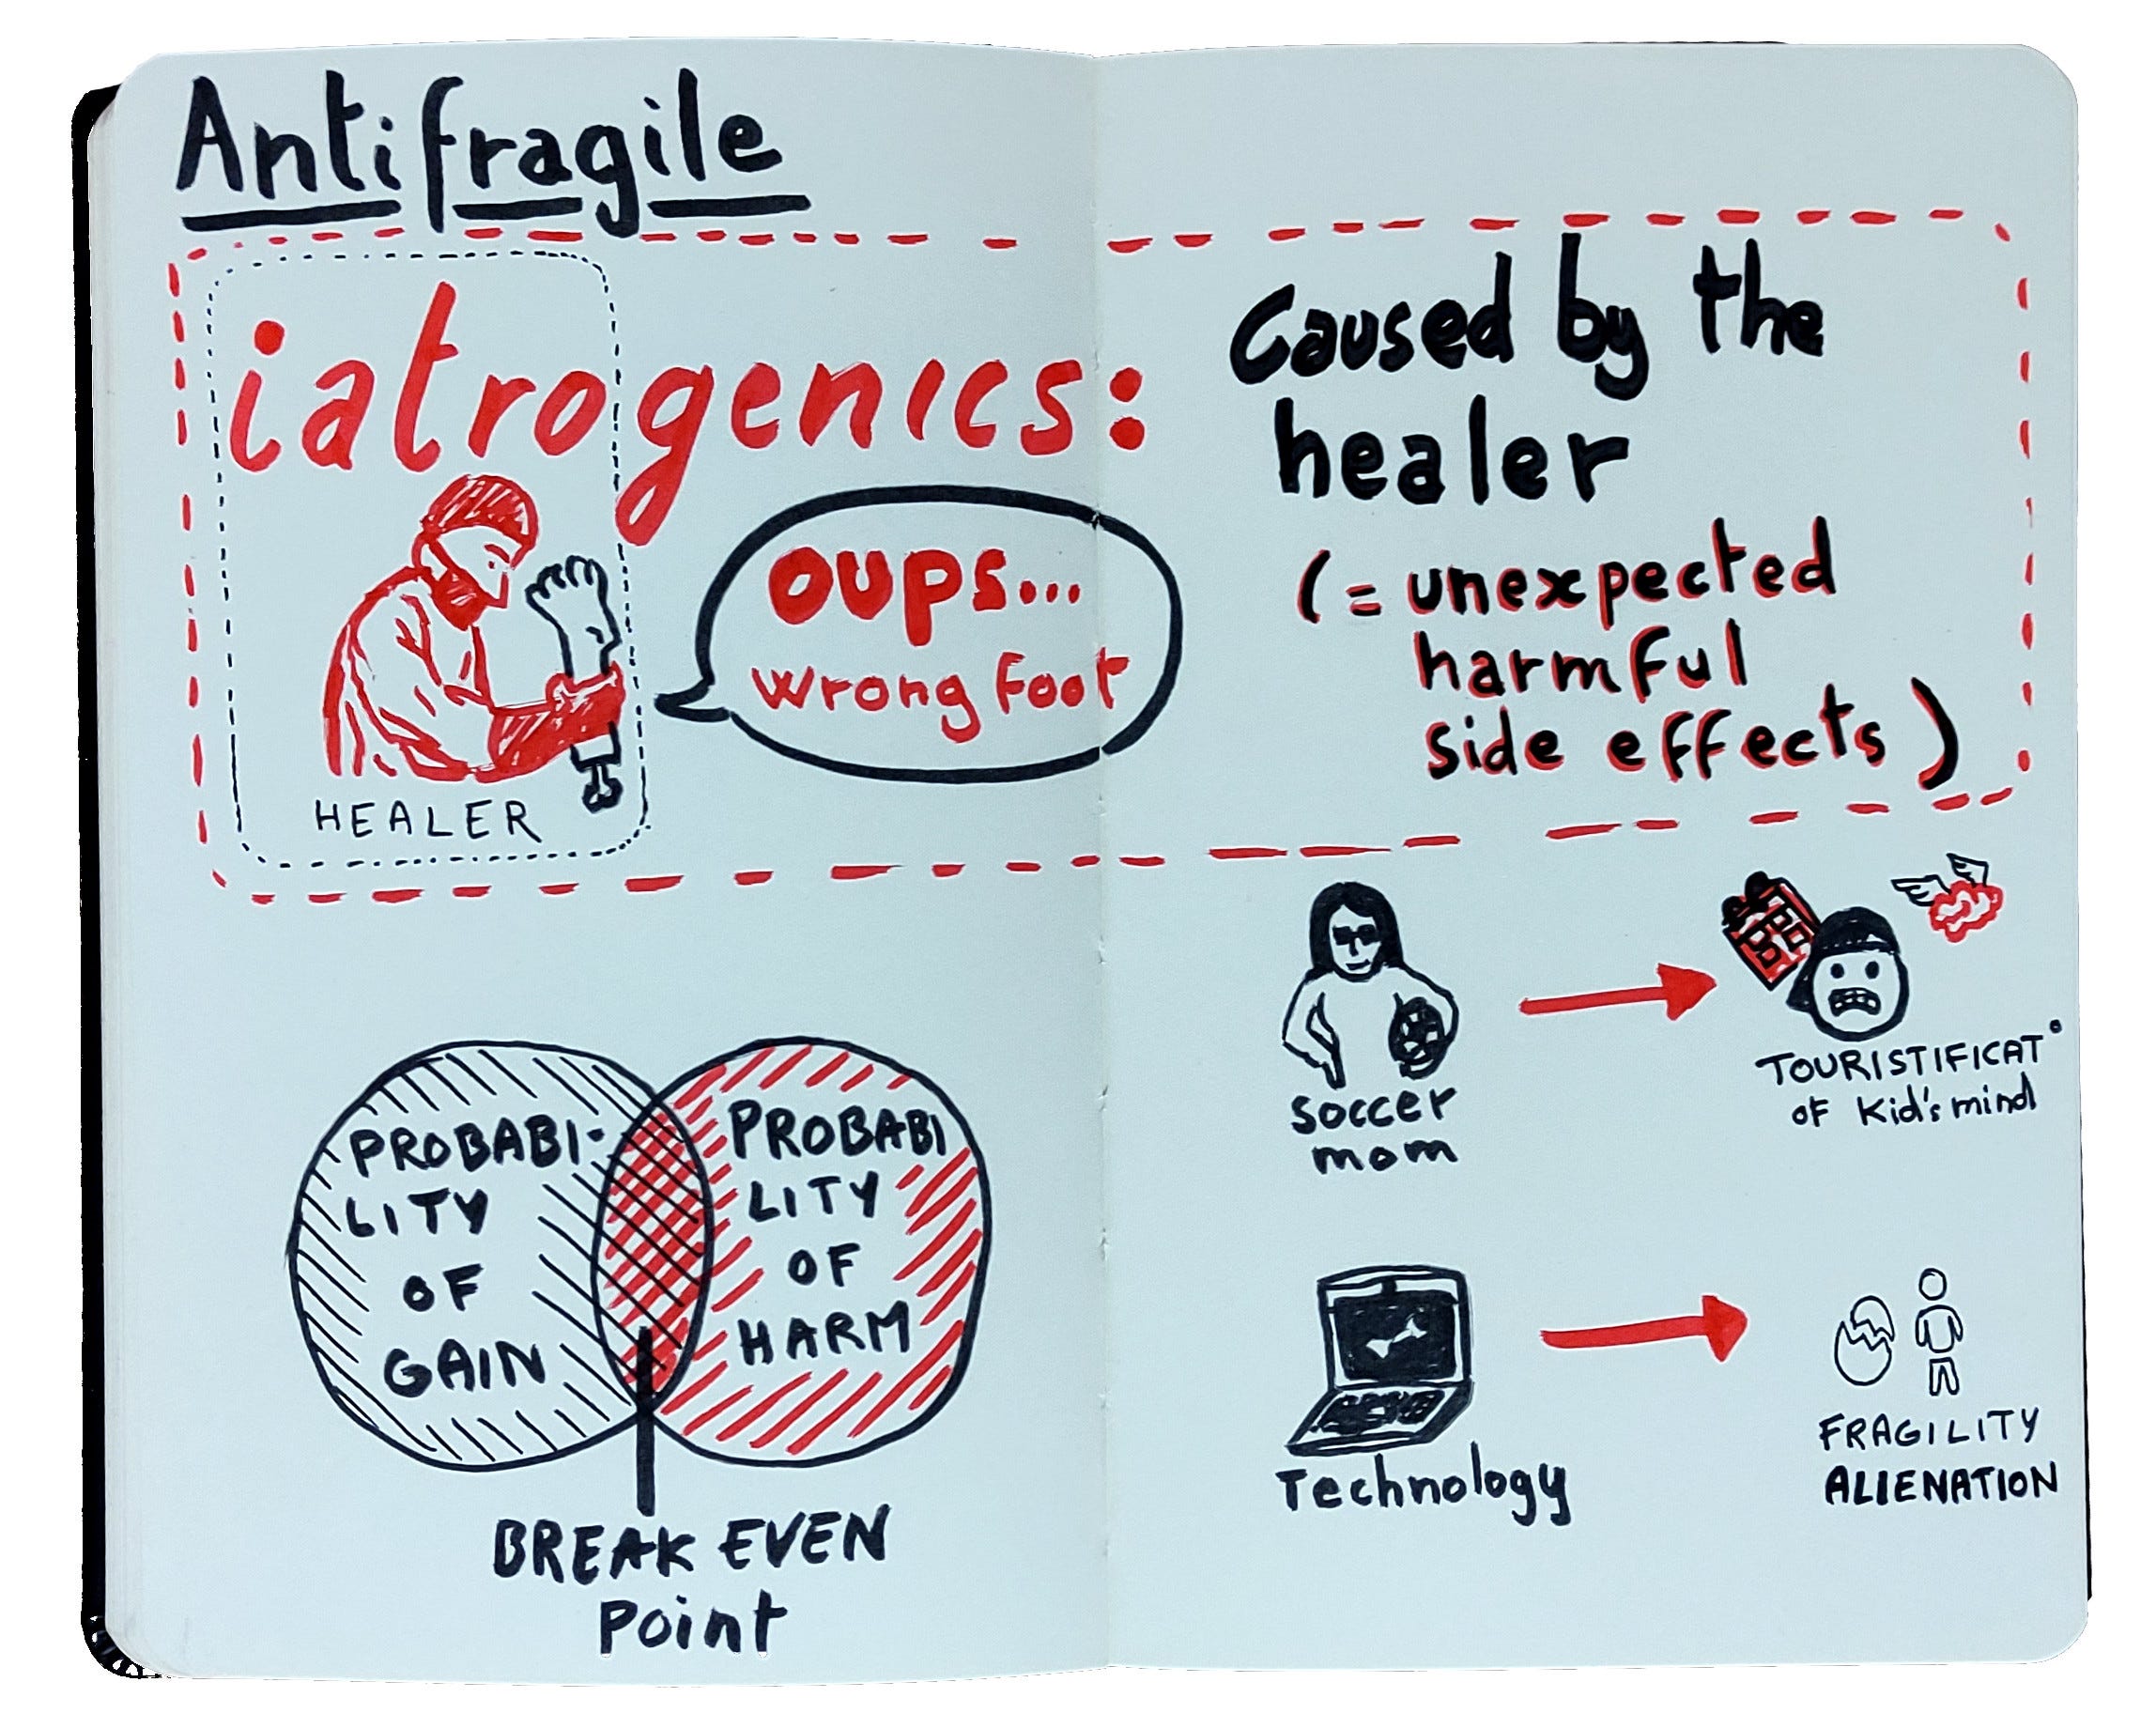 Antifragile
iatrogenics:
HEALER
OUPS...
wrong foot
Caused by the
healer
(= unexpected
harmful
side effects)
PROBABI-
LITY
OF
GAIN
PROBABI
LITY
OF
HARM
BREAK EVEN
Point
soccer
mom
TOURISTIFICAT°
OF Kid's mind
Technology
FRAGILITY
ALIENATION